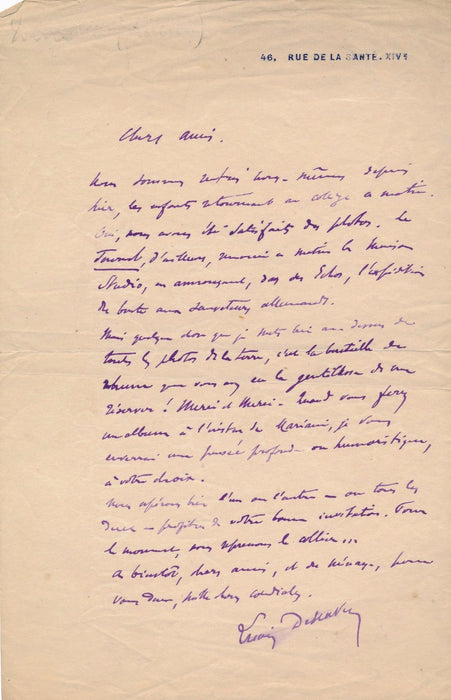 46, RUE DE LA SANTÉ. XIVᵉ
Chers amis.
Nous sommes rentrés nous-mêmes depuis
hier, les enfants retournant au collège ce matin.
Oui, nous avons été satisfaits des photos. Le
Journal, d'ailleurs, a matin la maison
Studio, en annonçant, dans des Echos, l'expédition
de aux sauveteurs allemands.
Mais quelque chose que je mets bien au dessus de
toutes les photos de la terre, c'est la bouteille de
rhum que vous avez eu la gentillesse de me
réserver ! Merci et Merci. Quand vous ferez
un album à l'instar de Mariani, je vous
enverrai une pensée profonde ou humoristique,
à votre choix.
Nous espérons bien l'un ou l'autre — ou tous les
deux — profiter de votre bonne invitation. Pour
le moment, nous reprenons le collier...
A bientôt, chers amis, et de ménage, pour
vous deux, notre cordiale.
Lucien Descaves